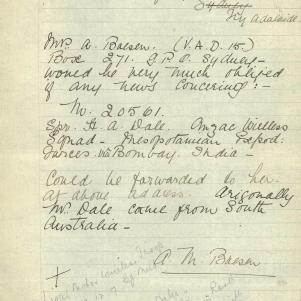 Sydney
Try Adelaide
Mrs A. Baesen. (V.A.D. 15.)
Box 271. G.P.O. Sydney -
would be very much obliged
if any news concering:-
No. 20561.
Spr. H. A Dale Anzac Wireless
Sqnd - Mesopotamian Exped:
Forces. via Bombay. India -
Could be forwarded to her
at above address. Arigonally
Mr Dale came from South
Australia -
A. M. Baesen